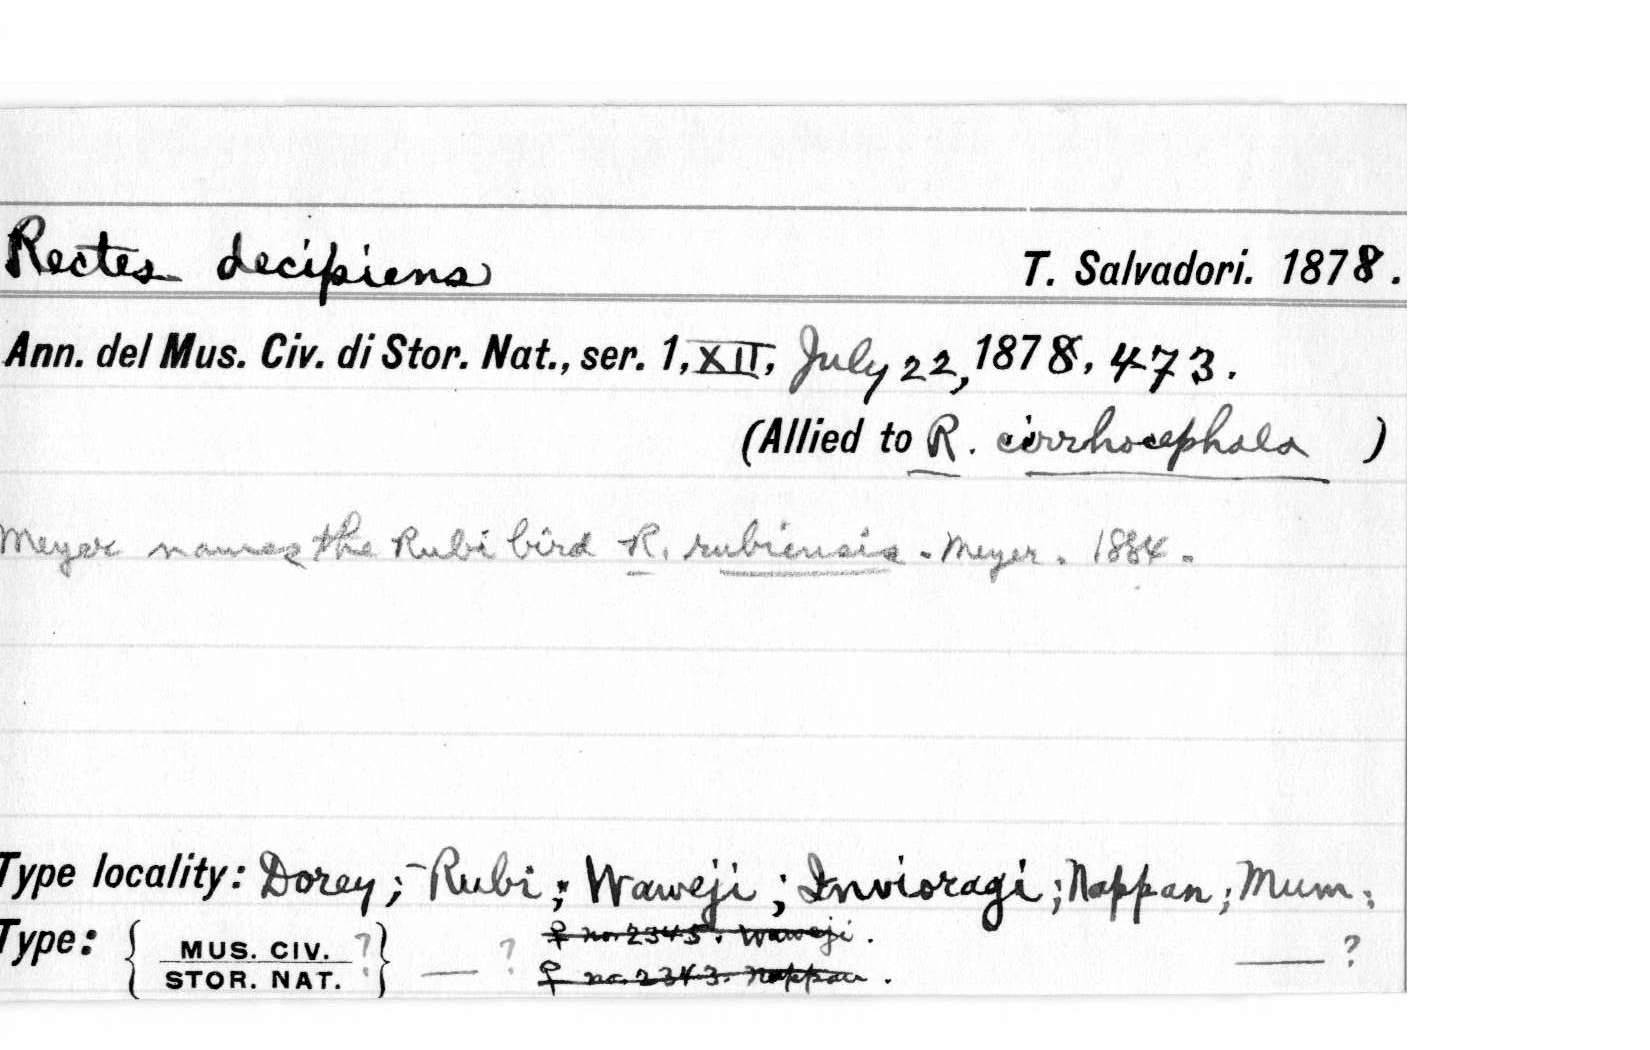 Rectes decipiens T. Salvadori. 1878.
Ann. del Mus. Civ. di Stor. Nat., ser. 1, XII, July 22, 1878, 473.
(Allied to R. cirrhocephala )
Meyer names the Rubi bird R. rubiensis. Meyer. 1884.
Type locality: Dorey; Rubi; Waweji; Invioragi; Nappan; Mum;
Type: { MUS. CIV. ? } — ? ♀ no. 2345. Waweji. — ?
STOR. NAT. ♀ no. 2343. Nappan.